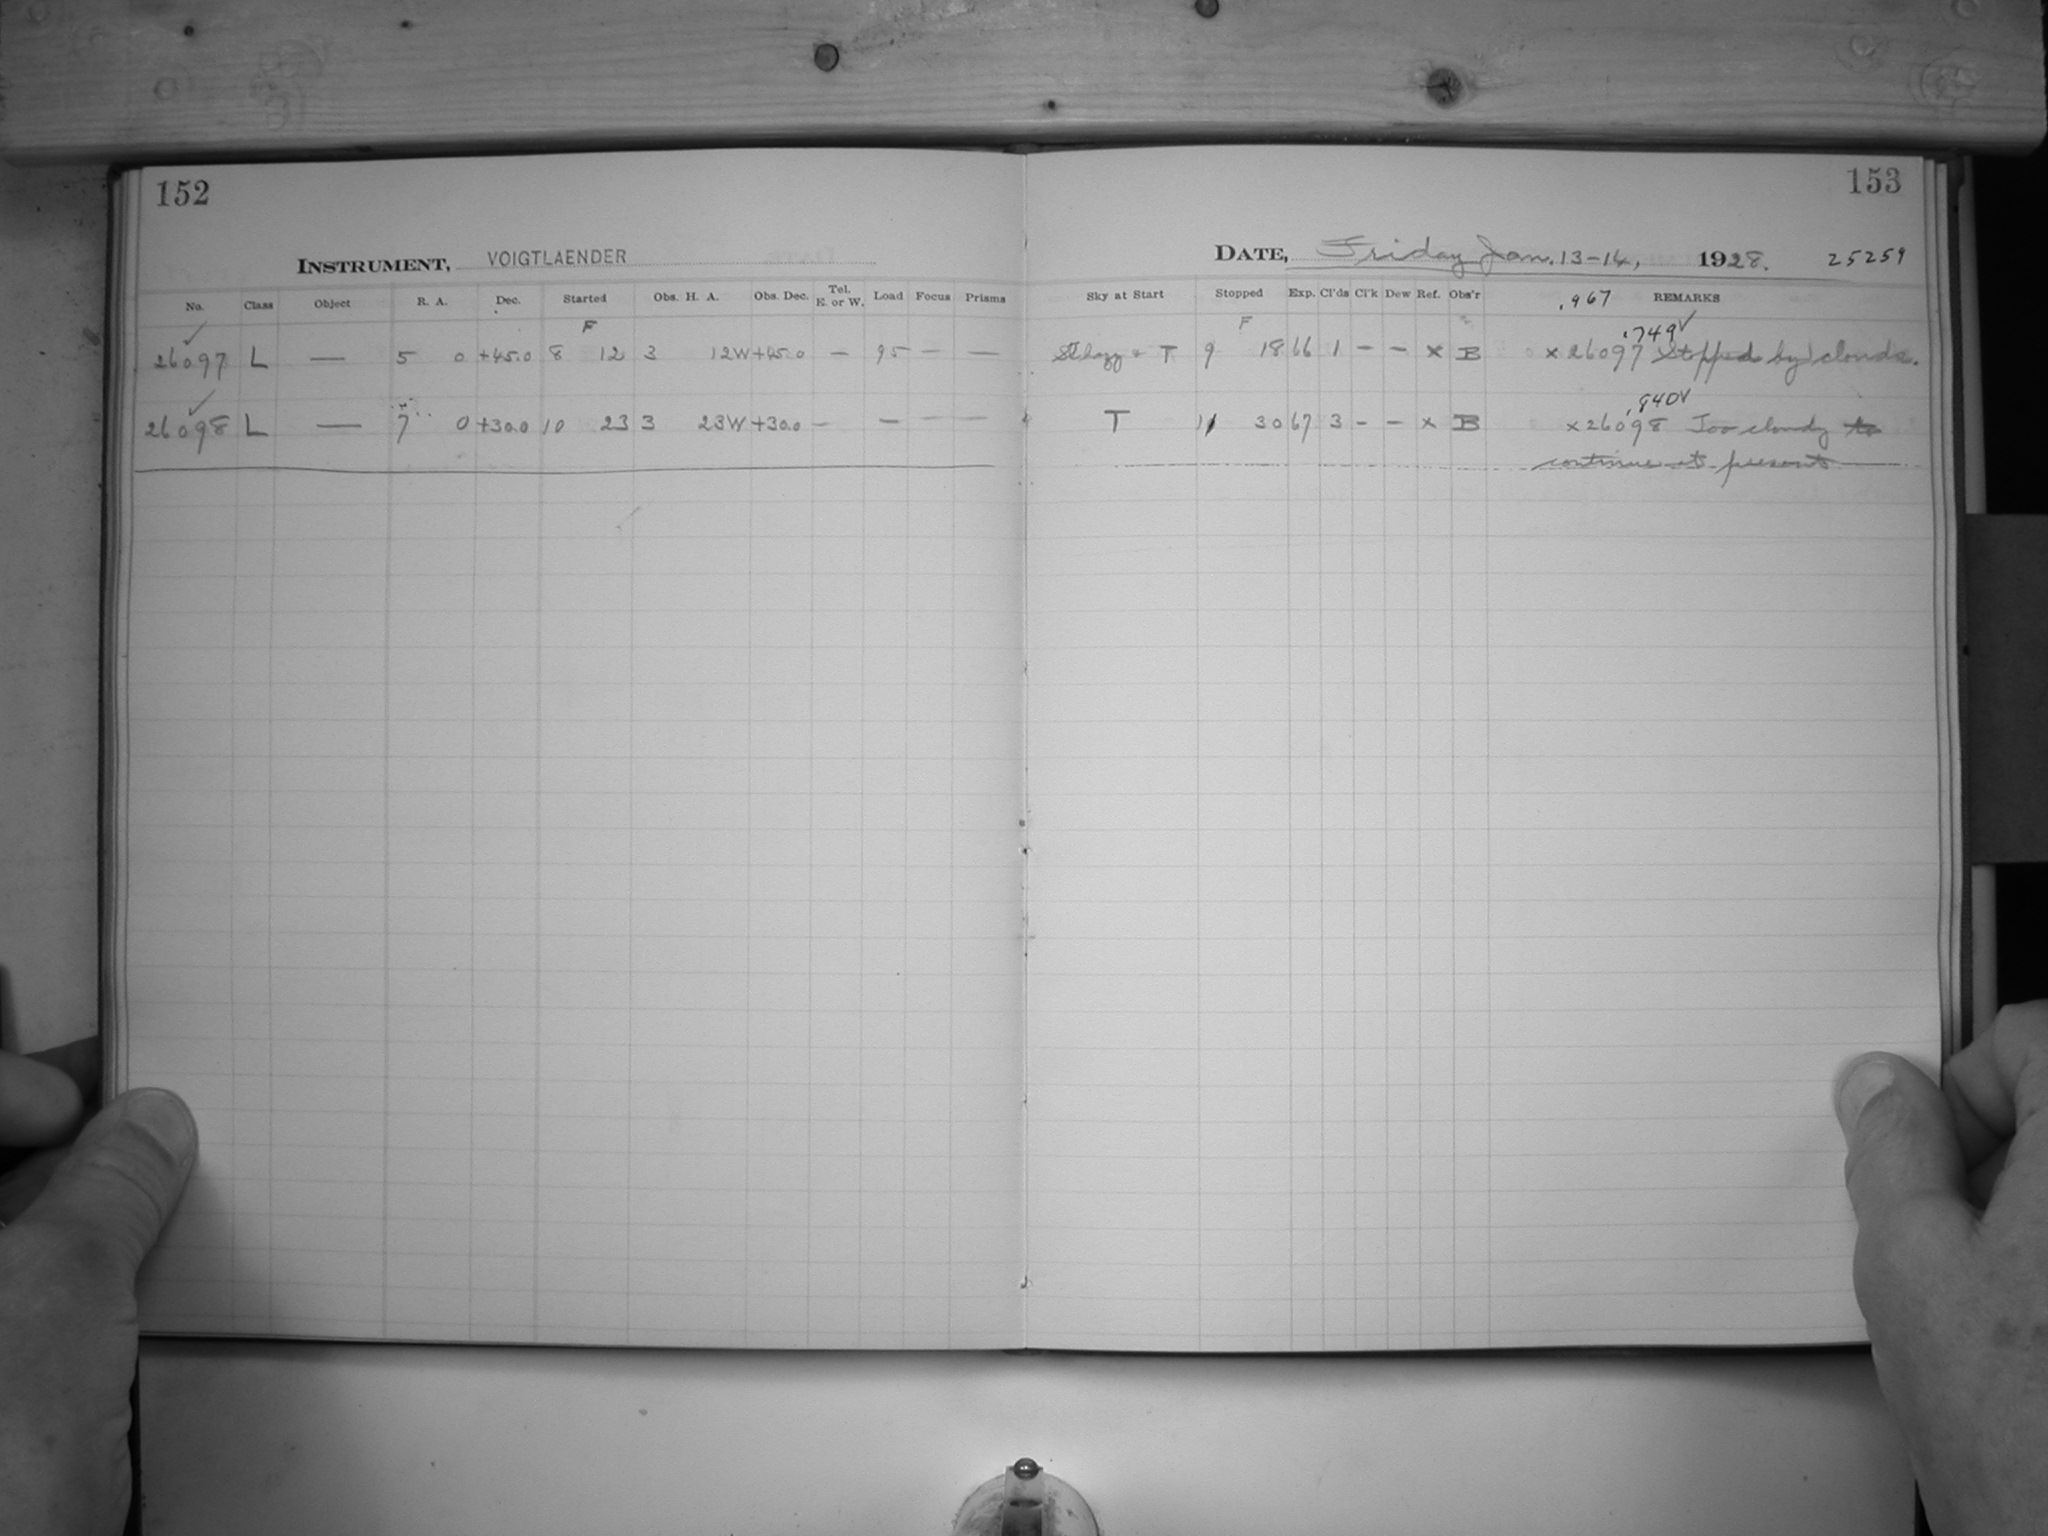 152
153
INSTRUMENT, VOIGTLAENDER
DATE, Friday Jan. 13-14, 1928. 25259
No. Class Object R. A. Dec. Started Obs. H. A. Obs. Dec. Tel. E. or W. Load Focus Prisms Sky at Start Stopped Exp. Cl'ds Cl'k Dew Ref. Obs'r .967 REMARKS
F F .749✓
✓
26097 L — 5 0 +45.0 8 12 3 12W +45.0 — 95 — — T 9 18 66 1 — — x B x 26097 Stopped by clouds.
✓ .840✓
26098 L — 7 0 +30.0 10 23 3 23W +30.0 — — — — T 11 30 67 3 - - x B x 26098 Too cloudy to
continue at present